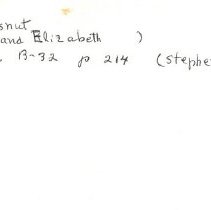 snut
and Elizabeth )
B-32 p 214 (Stephe